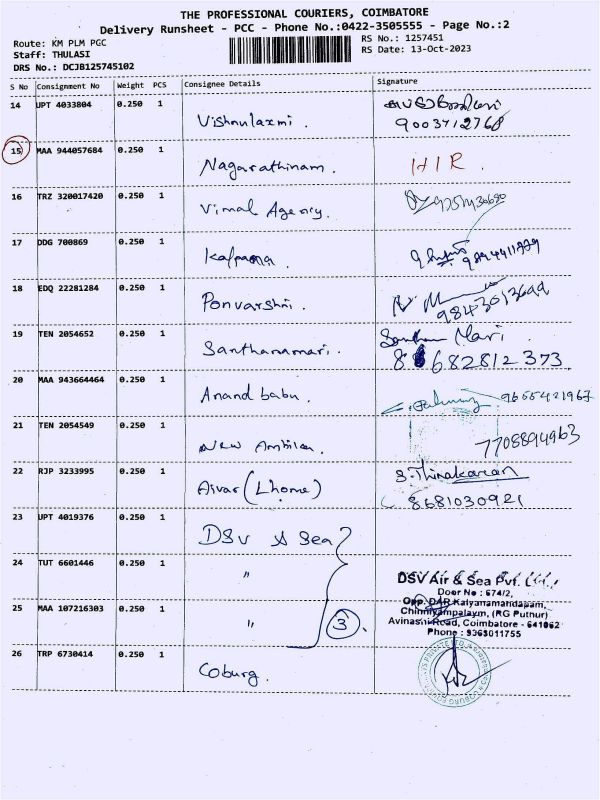 THE PROFESSIONAL COURIERS, COIMBATORE
Delivery Runsheet - PCC - Phone No.:0422-3505555 - Page No.:2
Route: KM PLM PGC
RS No.: 1257451
Staff: THULASI
RS Date: 13-Oct-2023
DRS No.: DCJB125745102
S No Consignment No Weight PCS Consignee Details Signature
14 UPT 4033804 0.250 1 Vishnulaxmi.
9003712768
15 MAA 944057684 0.250 1 Nagarathinam. HIR.
16 TRZ 320017420 0.250 1 Vimal Agency.
17 DDG 700869 0.250 1 Kalpana.
18 EDQ 22281284 0.250 1 Ponvarshni.
19 TEN 2054652 0.250 1 Santhanamari. Mari
682812 373
20 MAA 943664464 0.250 1 Anand babu. 9655421967
21 TEN 2054549 0.250 1 New
7708894963
22 RJP 3233995 0.250 1 Aivar (Lhome) S. Thinakaran
8681030921
23 UPT 4019376 0.250 1 DSV A Sea
24 TUT 6601446 0.250 1 "
DSV Air & Sea Pvt.
Door No : 674/2,
Opp. DAR Kalyanamandapam,
25 MAA 107216303 0.250 1 " 3.
Chinniyampalaym, (RG Puthur)
Avinashi Road, Coimbatore - 641062
Phone : 9363011755
26 TRP 6730414 0.250 1 Coburg.